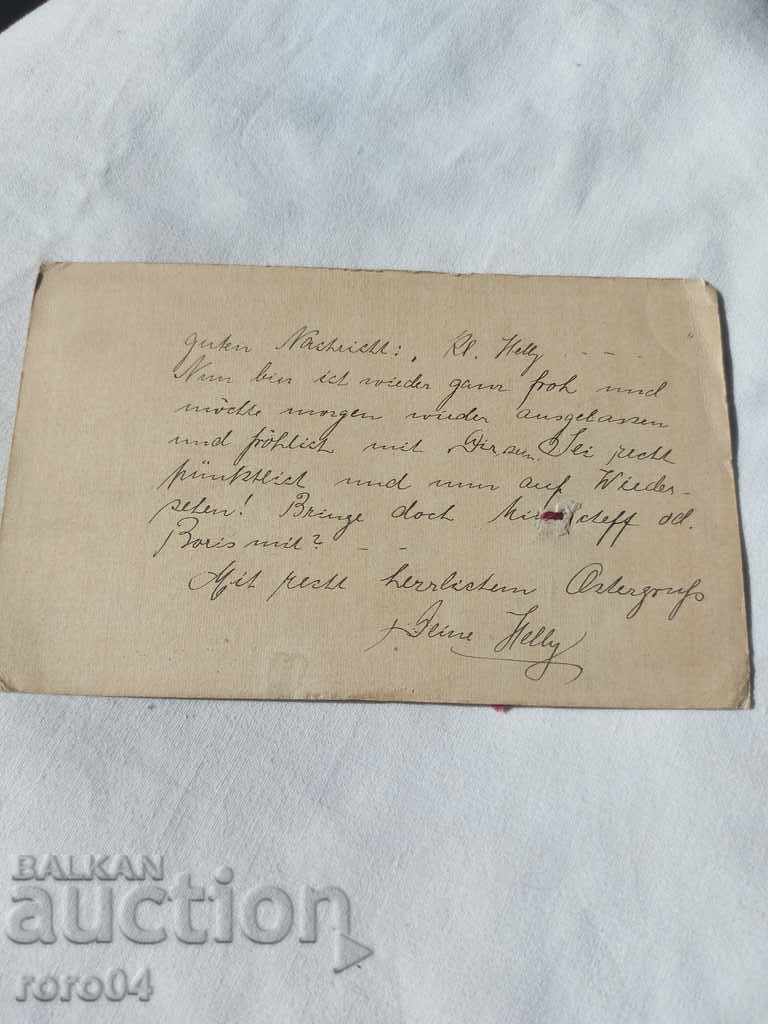 guten Nachricht: , Kl. Helly . - - -
Nun bin ich wieder ganz froh und
möchte morgen wieder ausgelassen
und fröhlich mit Dir sein. Sei recht
pünktlich und nun auf Wieder-
sehen! Bringe doch od.
Boris mit? - -
Mit recht herzlichem Ostergruß
Deine Helly
BALKAN
auction
roro04